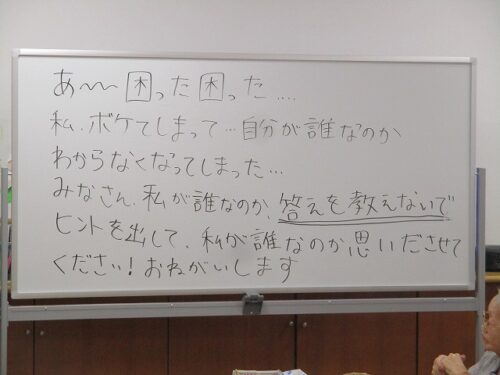 あ〜〜困った困った....
私、ボケてしまって…自分が誰なのか
わからなくなってしまった…
みなさん、私が誰なのか、答えを教えないで
ヒントを出して、私が誰なのか思いださせて
ください！おねがいします